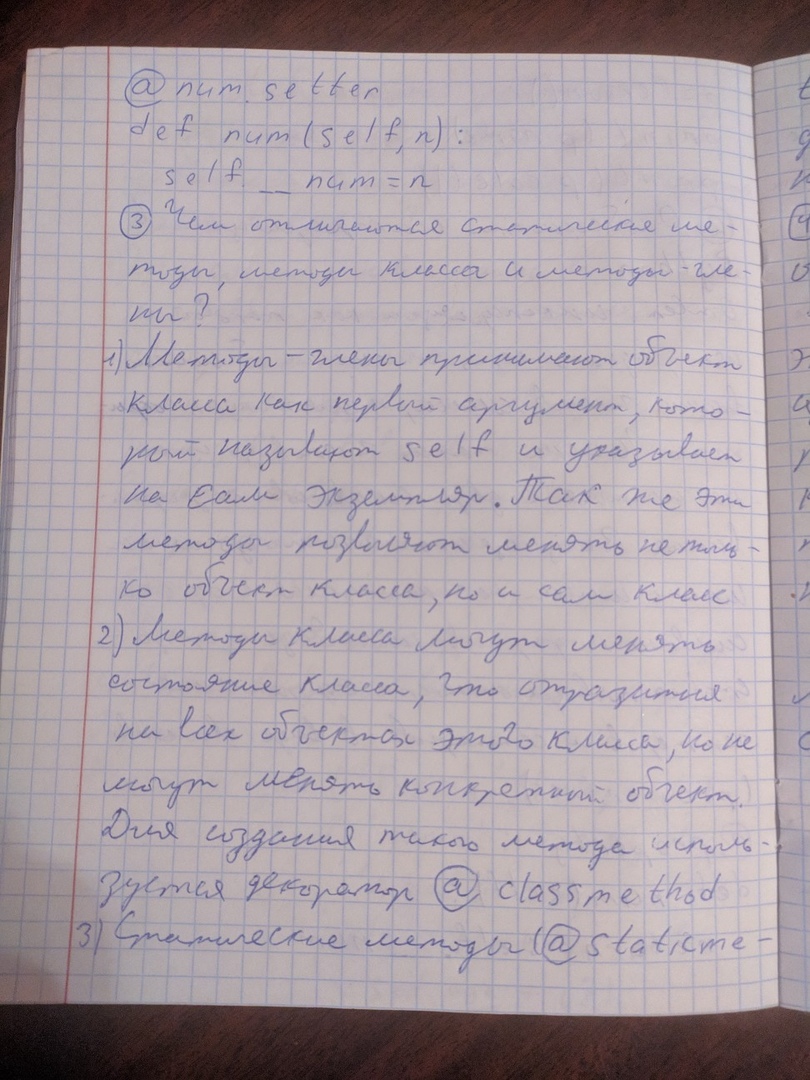 @ num.setter
def num(self, n):
self.__num = n
③ Чем отличаются статические ме-
тоды, методы класса и методы-чле-
ны?
1) Методы-члены принимают объект
класса как первый аргумент, кото-
рый называют self и указывает
на сам экземпляр. Так же эти
методы позволяют менять не толь-
ко объект класса, но и сам класс
2) Методы класса могут менять
состояние класса, что отразится
на всех объектах этого класса, но не
могут менять конкретный объект.
Для создания такого метода исполь-
зуется декоратор @ classmethod
3) Статические методы (@ staticme-